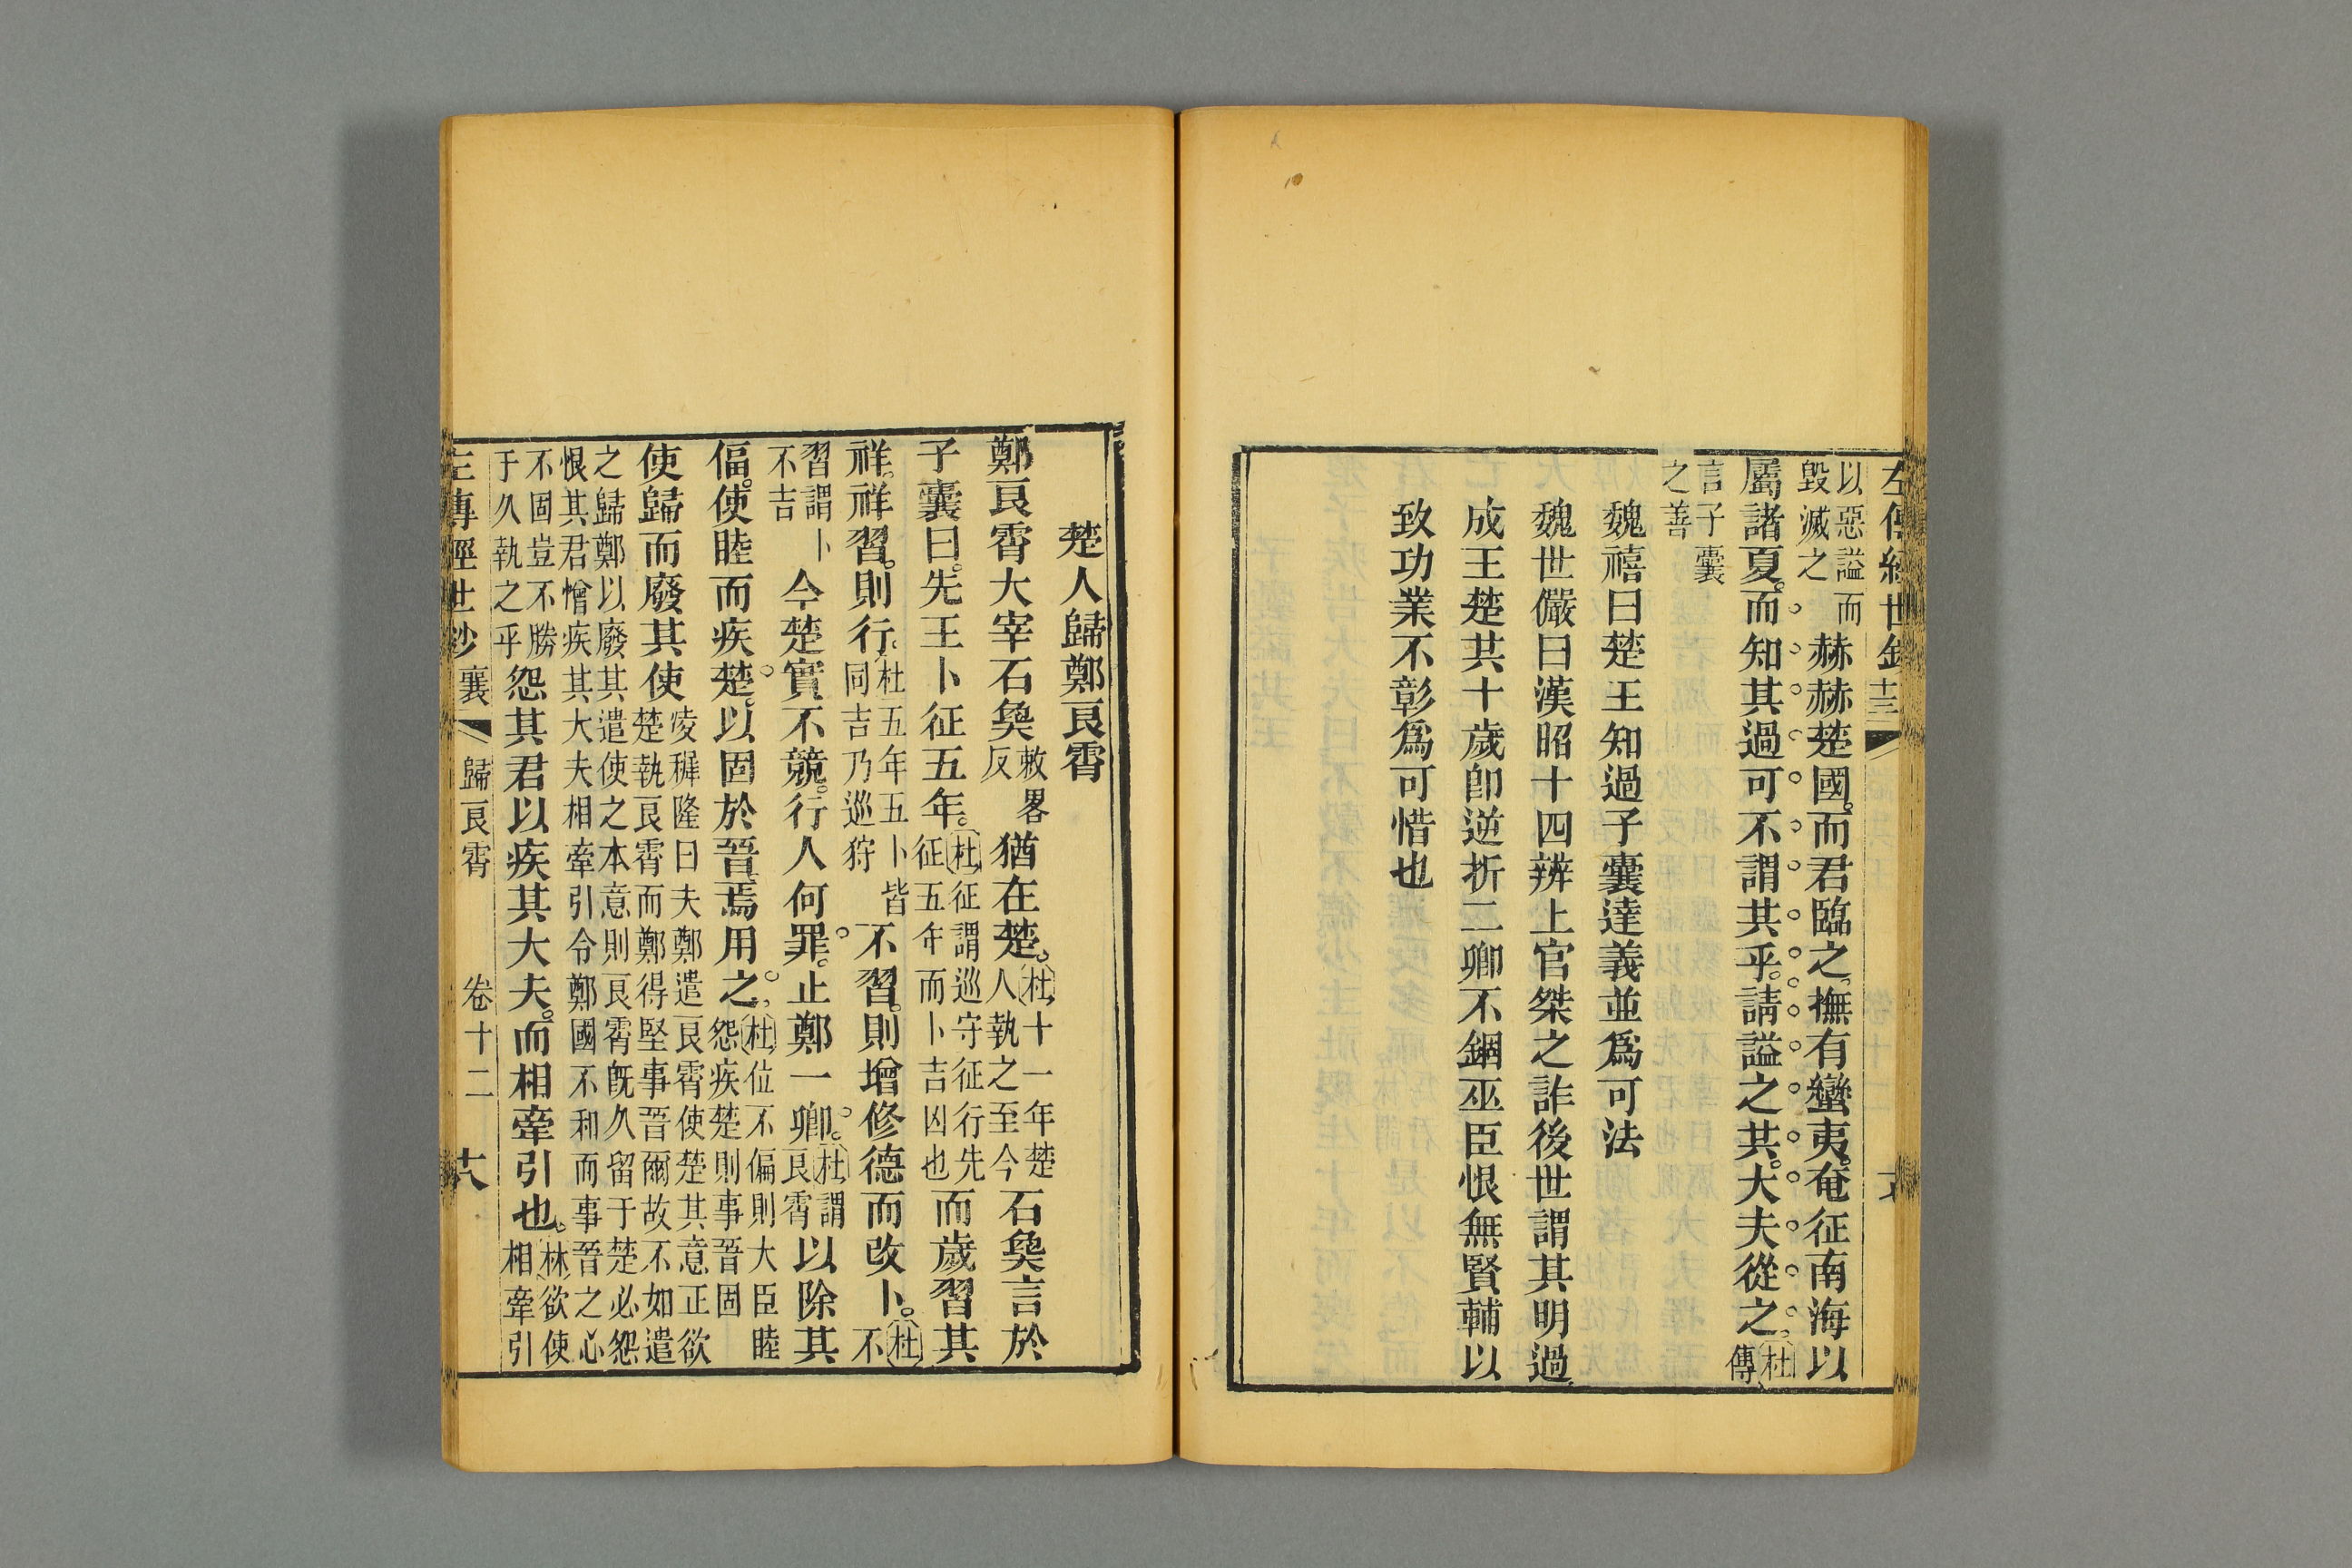 左傳經世鈔
以惡謚而
毀滅之
赫赫楚國而君臨之撫有蠻夷奄征南海以
屬諸夏而知其過可不謂其乎請謚之共大夫從之
杜
傳
言子囊
之善
魏禧曰楚王知過子囊達義並爲可法
魏世儼曰漢昭十四辨上官桀之詐後世謂其明過
成王楚共十歲卽逆折二卿不錮巫臣恨無賢輔以
致功業不彰爲可惜也
楚人歸鄭良霄
鄭良霄大宰石㚟
敕畧
反
猶在楚
杜十一年楚
人執之至今
石㚟言於
子囊曰先王卜征五年
杜征謂巡守征行先
征五年而卜吉凶也
而歲習其
祥祥習則行
杜五年五卜皆
同吉乃巡狩
不習則增修德而改卜
杜
不
習謂卜
不吉
今楚實不競行人何罪止鄭一卿
杜謂
良霄
以除其
偪使睦而疾楚以固於晉焉用之
杜位不偏則大臣睦
怨疾楚則事晉固
使歸而廢其使
凌稺隆曰夫鄭遣良霄使楚其意正欲
楚執良霄而鄭得堅事晉爾故不如遣
之歸鄭以廢其遣使之本意則良霄旣久留于楚必怨
恨其君憎疾其大夫相牽引令鄭國不和而事晉之心
不固豈不勝
于久執之乎
怨其君以疾其大夫而相牽引也
林欲使
相牽引
左傳經世鈔 襄 歸良霄 卷十二 十八